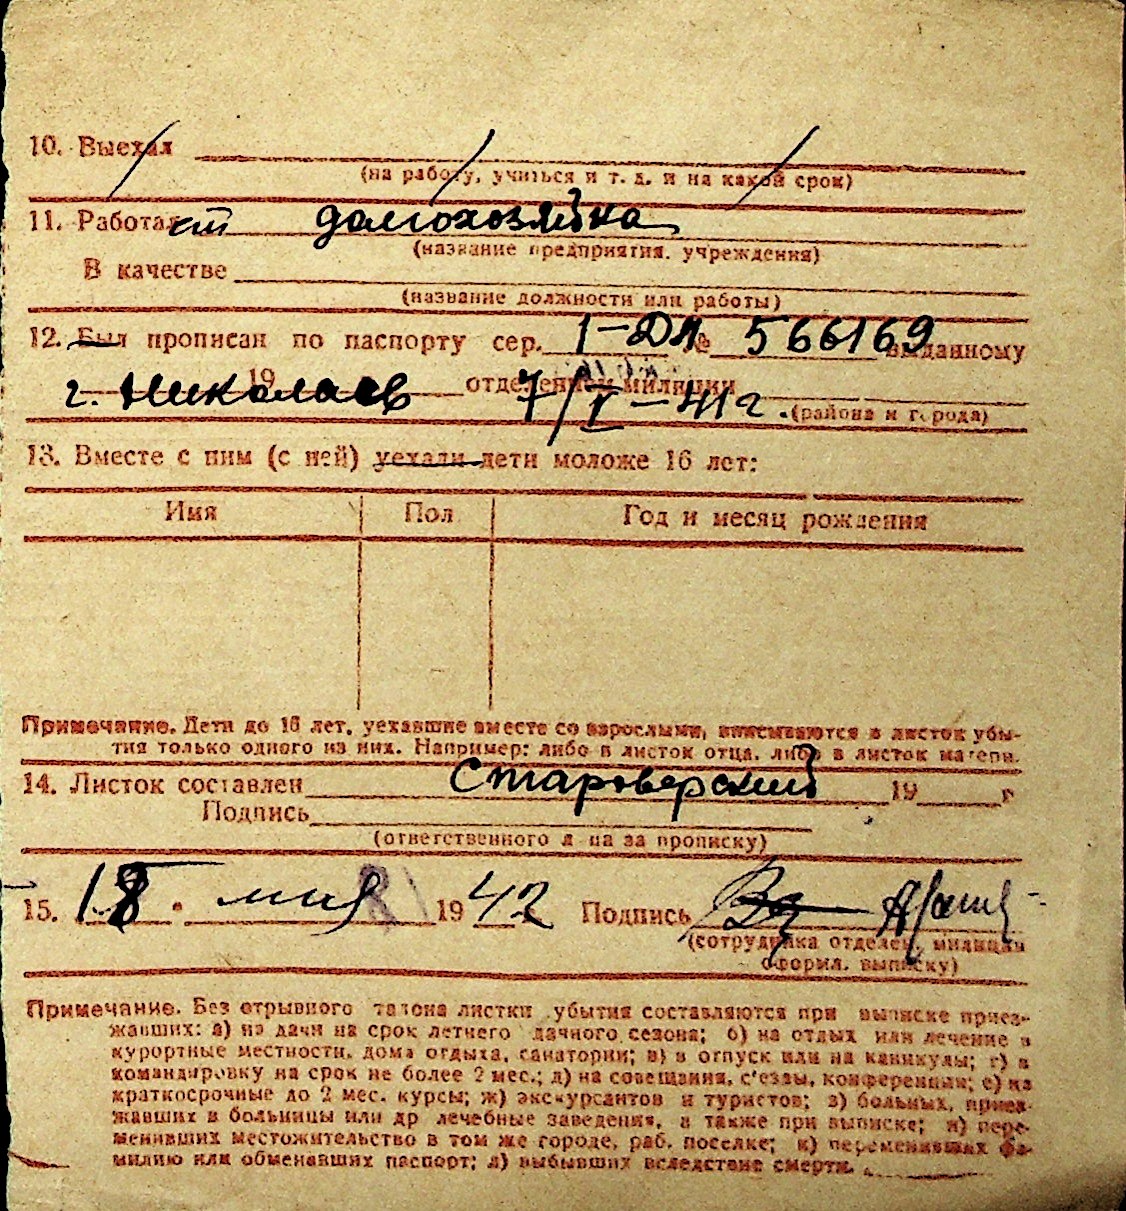 10. Выехал
(на работу, учиться и т. д. и на какой срок)
11. Работает домохозяйка
(название предприятия, учреждения)
В качестве
(название должности или работы)
12. Был прописан по паспорту сер. 1-ДЛ № 566169 выданному
г. Николаев 19 отделением милиции 7/I-41 г.
(района и города)
13. Вместе с ним (с ней) уехали дети моложе 16 лет:
Имя Пол Год и месяц рождения
Примечание. Дети до 16 лет, уехавшие вместе со взрослыми, вписываются в листок убы-
тия только одного из них. Например: либо в листок отца, либо в листок матери.
14. Листок составлен Староверский 19 г
Подпись
(ответственного л-ца за прописку)
15. 18 • мая 1942 Подпись
(сотрудника отделен. милиции
оформл. выписку)
Примечание. Без отрывного талона листки убытия составляются при выписке приез-
жавших: а) на дачи на срок летнего дачного сезона; б) на отдых или лечение в
курортные местности, дома отдыха, санатории; в) в отпуск или на каникулы; г) в
командировку на срок не более 2 мес.; д) на совещания, с'езды, конференции; е) на
краткосрочные до 2 мес. курсы; ж) экскурсантов и туристов; з) больных, приез-
жавших в больницы или др лечебные заведения, а также при выписке; и) пере-
менивших местожительство в том же городе, раб. поселке; к) переменивших фа-
милию или обменявших паспорт; л) выбывших вследствие смерти.